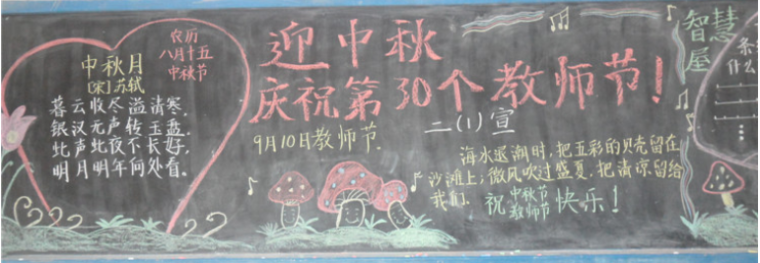 农历
八月十五
中秋节
中秋月
[宋]苏轼
暮云收尽溢清寒,
银汉无声转玉盘.
此声此夜不长好,
明月明年何处看.
迎中秋
庆祝第30个教师节!
二(1)宣
9月10日教师节.
海水退潮时,把五彩的贝壳留在
沙滩上;微风吹过盛夏,把清凉留给
我们.
祝中秋节教师节快乐!
智慧
屋
什么